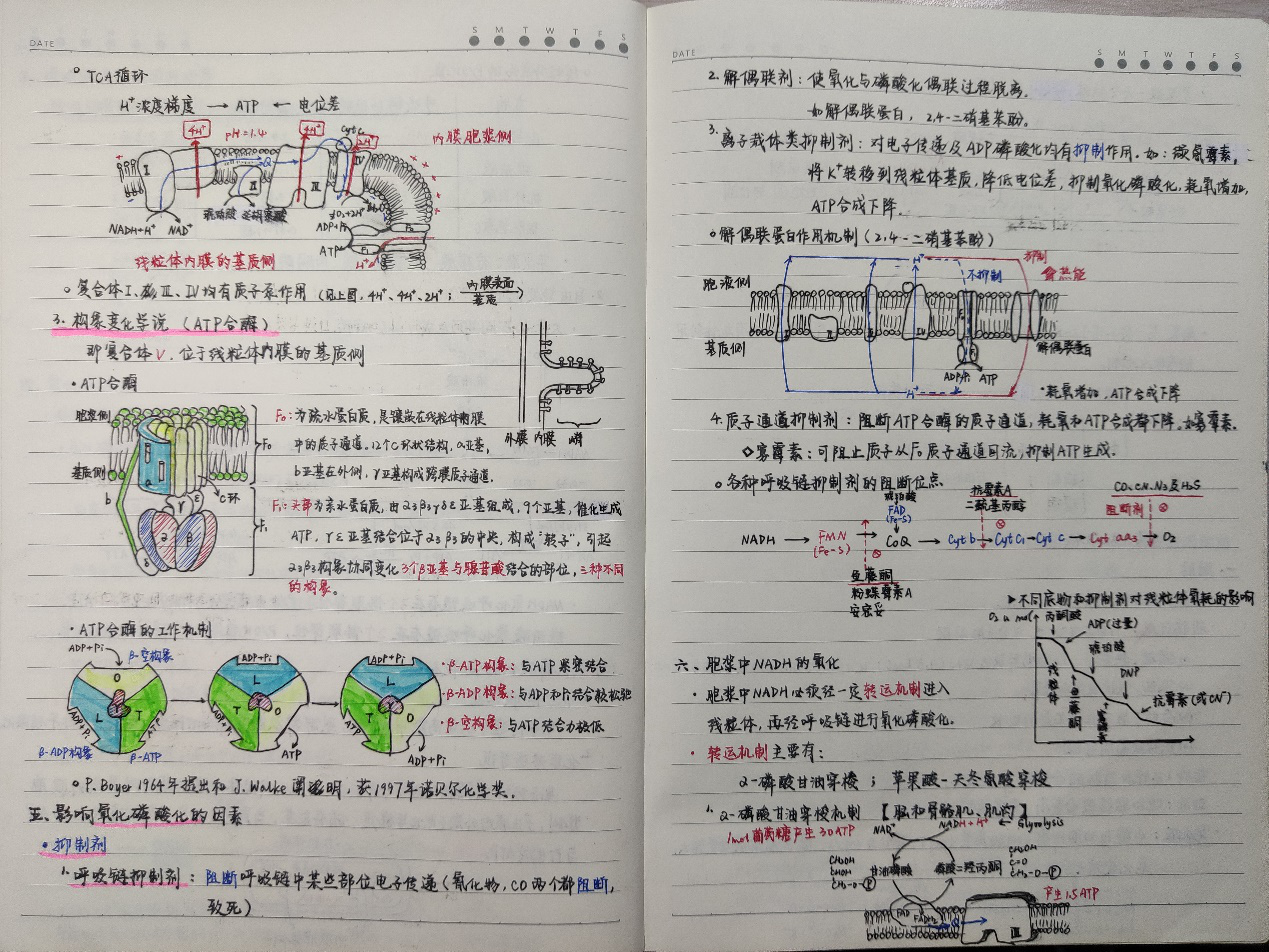 DATE
S M T W T F S
TCA循环
H⁺浓度梯度 → ATP ← 电位差
4H⁺ pH=1.4 4H⁺ Cyt c 2H⁺ 内膜胞浆侧
I Q II III IV
NADH+H⁺ NAD⁺ 琥珀酸 延胡索酸 ½O₂+2H⁺ H₂O
ADP+Pi
ATP F₁
H⁺
线粒体内膜的基质侧
复合体I、III、IV均有质子泵作用(见上图,4H⁺、4H⁺、2H⁺; 内膜表面
基质
3.构象变化学说(ATP合酶)
即复合体V.位于线粒体内膜的基质侧
·ATP合酶
外膜 内膜 嵴
胞浆侧
基质侧
F₀
F₁
a
b
c环
γ ε
α β
δ
F₀:为疏水蛋白质,是镶嵌在线粒体内膜
中的质子通道,12个C环状结构,a亚基,
b亚基在外侧,γ亚基构成跨膜质子通道.
F₁:头部为亲水蛋白质,由α3β3γδε亚基组成,9个亚基,催化生成
ATP,γε亚基结合位于α3β3的中央,构成“转子”,引起
α3β3构象协同变化3个β亚基与腺苷酸结合的部位,三种不同
的构象。
·ATP合酶的工作机制
ADP+Pi β-空构象
O L T
ADP+Pi ATP
β-ADP构象 β-ATP
ADP+Pi
L T O
ADP+Pi
ATP
ADP+Pi
L T O
ATP
ADP+Pi
·β-ATP构象:与ATP紧密结合
·β-ADP构象:与ADP和Pi结合较松弛
·β-空构象:与ATP结合力极低
P. Boyer 1964年提出和 J. Walke 阐明,获1997年诺贝尔化学奖.
五、影响氧化磷酸化的因素
·抑制剂
1.呼吸链抑制剂:阻断呼吸链中某些部位电子传递(氰化物,CO两个都阻断,
致死)
DATE
S M T W T F S
2.解偶联剂:使氧化与磷酸化偶联过程脱离.
如解偶联蛋白,2,4-二硝基苯酚。
3.离子载体类抑制剂:对电子传递及ADP磷酸化均有抑制作用.如:缬氨霉素,
将K⁺转移到线粒体基质,降低电位差,抑制氧化磷酸化,耗氧增加,
ATP合成下降.
解偶联蛋白作用机制(2,4-二硝基苯酚)
胞液侧
H⁺
不抑制
抑制
热能
基质侧
I II III IV F₀ F₁
解偶联蛋白
ADP+Pi ATP
H⁺
·耗氧增加,ATP合成下降
4.质子通道抑制剂:阻断ATP合酶的质子通道,耗氧和ATP合成都下降.如寡霉素.
◇寡霉素:可阻止质子从F₀质子通道回流,抑制ATP生成.
各种呼吸链抑制剂的阻断位点
琥珀酸
FAD
(Fe-S)
抗霉素A
二巯基丙醇
CO、CN、N3及H2S
阻断剂
NADH → FMN (Fe-S) → CoQ → Cyt b → Cyt c₁ → Cyt c → Cyt aa₃ → O₂
鱼藤酮
粉蝶霉素A
安密妥
▶不同底物和抑制剂对线粒体氧耗的影响
O₂ u mol
丙酮酸
ADP(过量)
琥珀酸
DNP
抗霉素(或CN⁻)
线粒体
鱼藤酮
寡霉素
六、胞浆中NADH的氧化
·胞浆中NADH必须经一定转运机制进入
线粒体,再经呼吸链进行氧化磷酸化.
·转运机制主要有:
α-磷酸甘油穿梭;苹果酸-天冬氨酸穿梭
1.α-磷酸甘油穿梭机制【脑和骨骼肌、肌肉】
1mol葡萄糖产生30ATP
NAD⁺ NADH+H⁺ ← Glycolysis
CH₂OH
CHOH
CH₂-O-P
甘油磷酸
磷酸二羟丙酮
CH₂OH
C=O
CH₂-O-P
产生1.5ATP
FAD FADH₂ Q III